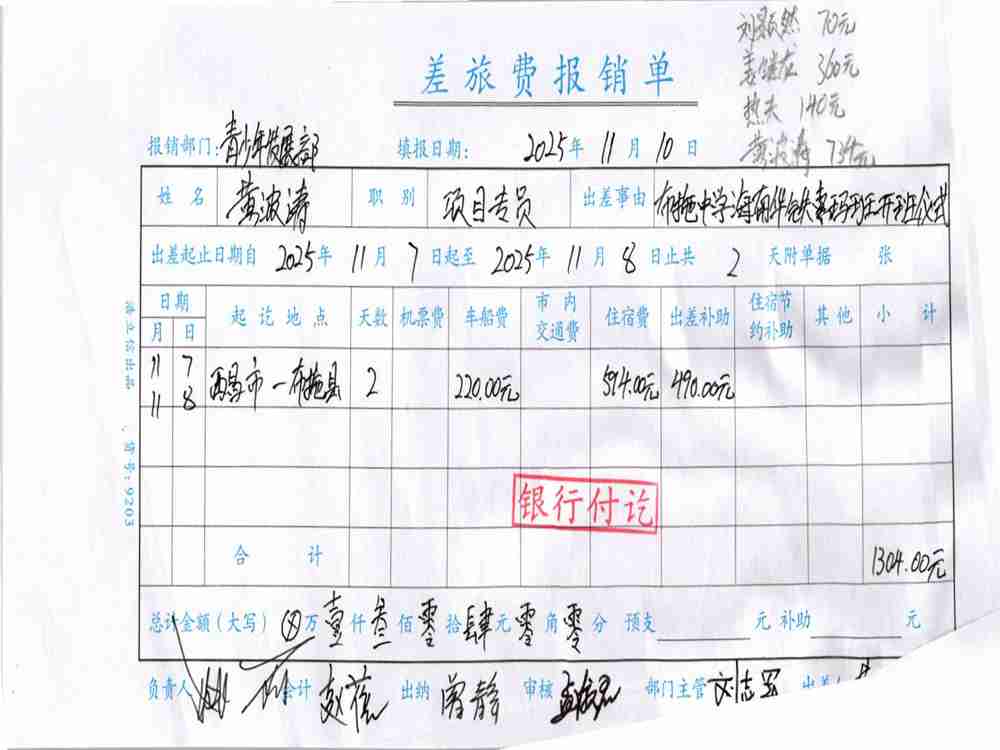 刘 然 70元
姜 360元
热夫 140元
黄波涛 734元
差旅费报销单
报销部门：青少年发展部 填报日期： 2025年 11月 10日
姓名 黄波涛 职别 项目专员 出差事由 布拖中学海南华铁索玛班开班仪式
出差起止日期自 2025年 11月 7日起至 2025年 11月 8日止共 2 天附单据 张
日期 起讫地点 天数 机票费 车船费 市内交通费 住宿费 出差补助 住宿节约补助 其他 小计
月 日
11 7 西昌市—布拖县 2 220.00元 594.00元 490.00元
11 8
银行付讫
合计 1304.00元
总计金额（大写） ⊗万 壹仟 叁佰 零拾 肆元 零角 零分 预支 元 补助 元
负责人 会计 赵蓓 出纳 曾静 审核 部门主管 文志军
货号：9203